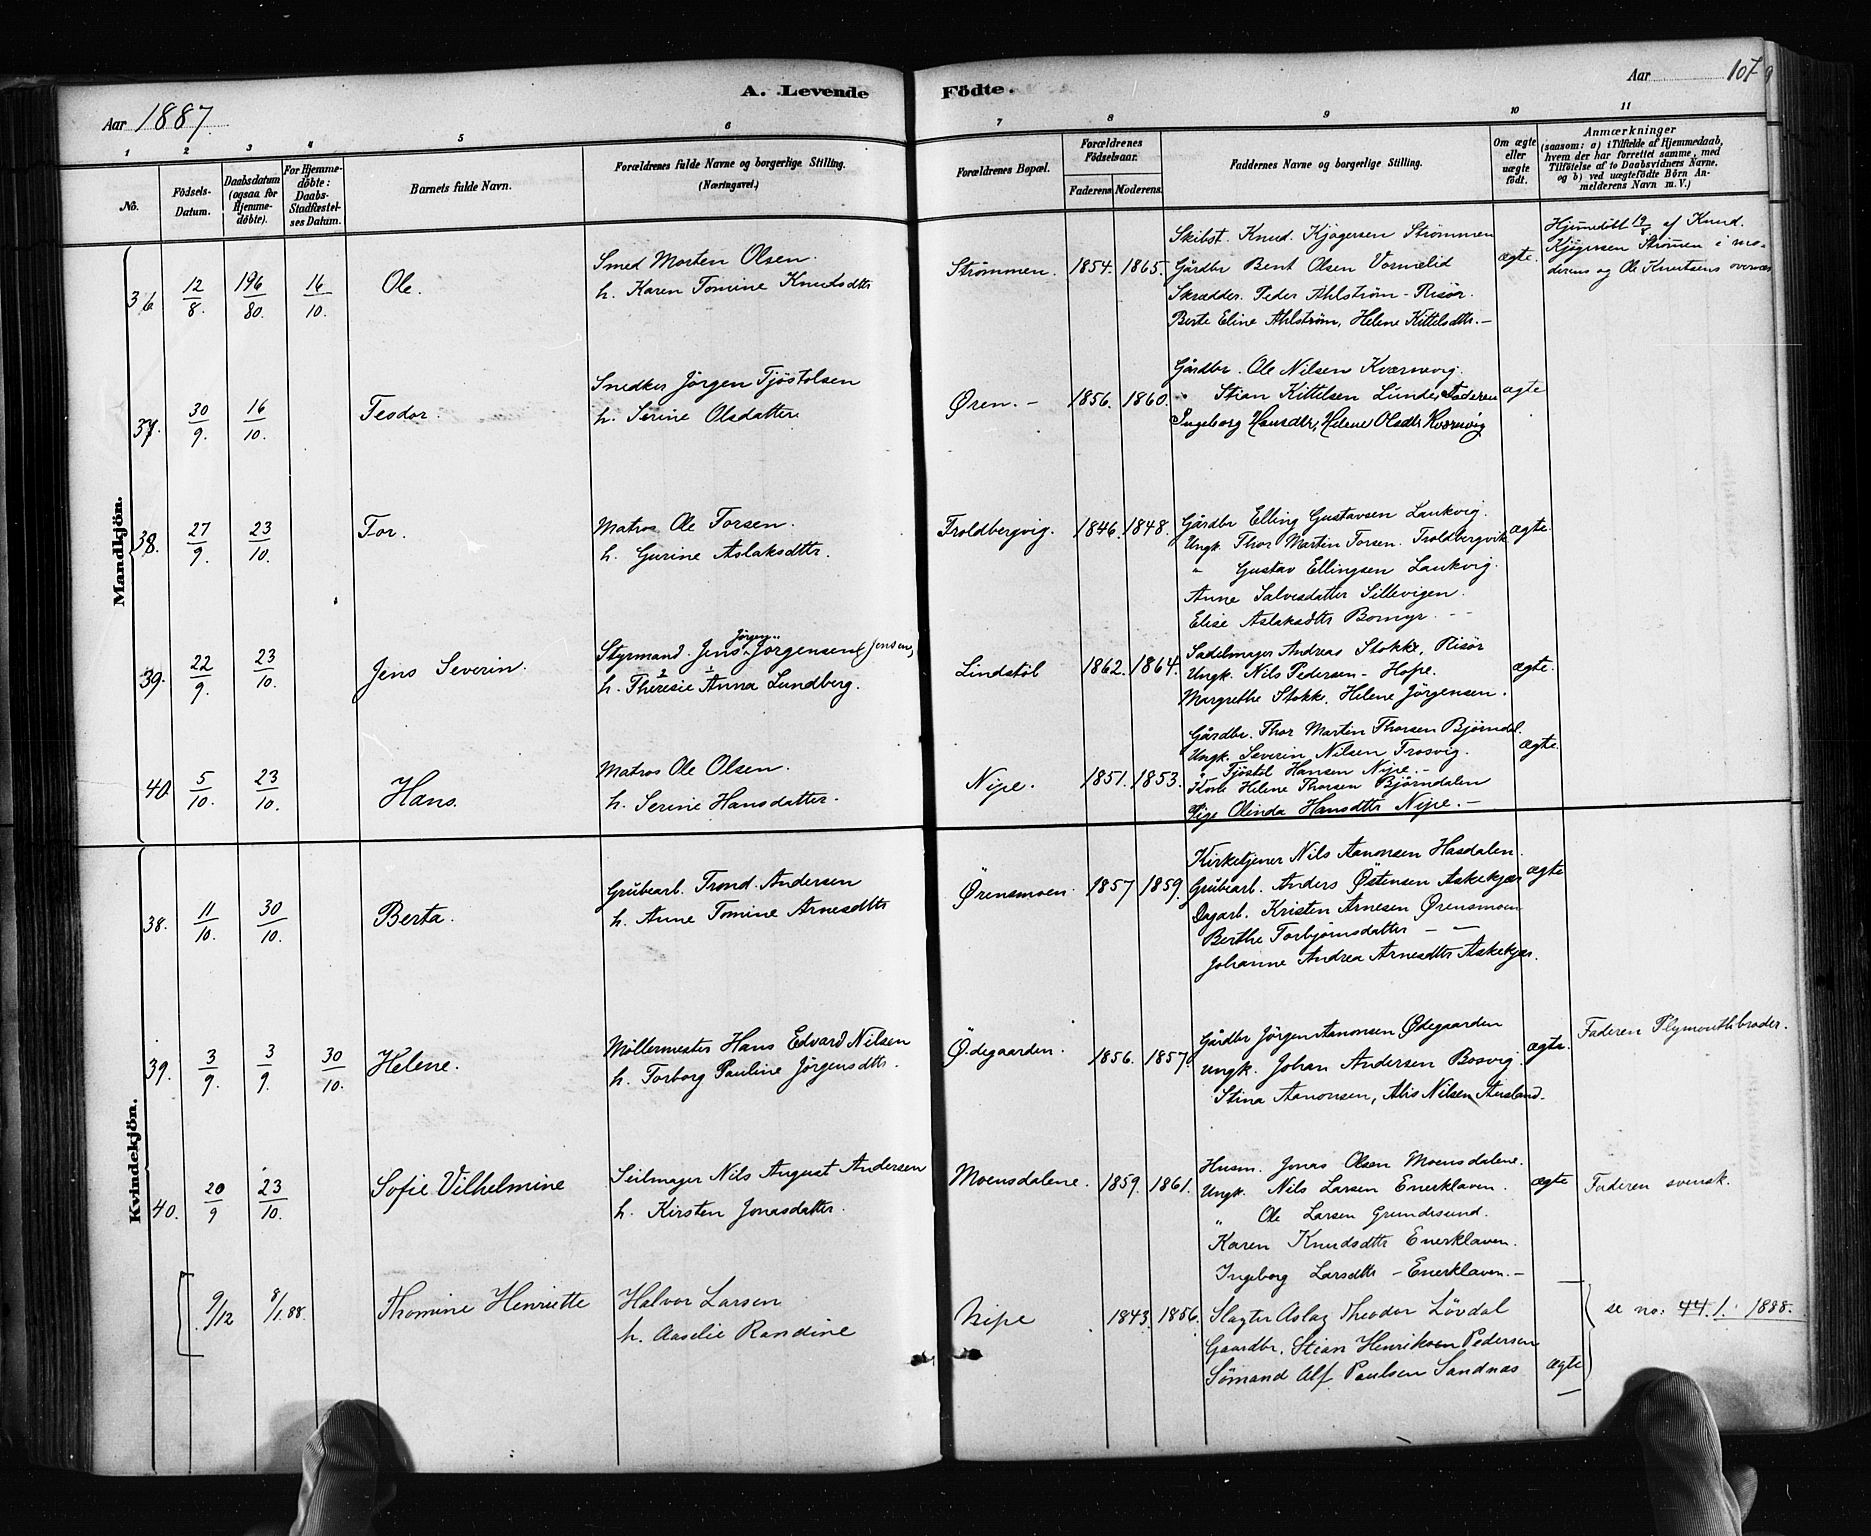 Aar 1887.
A. Levende Födte.
Aar 107
1 2 3 4 5 6 7 8 9 10 11
No.
Födsels-Datum.
Daabsdatum (ogsaa for Hjemme-döbte).
For Hjemme-döbte: Daabs-Stadfæstel-ses Datum.
Barnets fulde Navn.
Forældrenes fulde Navne og borgerlige Stilling. (Næringsvei.)
Forældrenes Bopæl.
Forældrenes Födselsaar.
Faderens. Moderens.
Faddernes Navne og borgerlige Stilling.
Om ægte eller uægte födt.
Anmærkninger
(saasom: a) i Tilfælde af Hjemmedaab, hvem der har forrettet samme, med Tilföielse af to Daabsvidners Navne, og b) ved uægtefödte Börn Anmelderens Navn m. V.)
Mandkjön.
36 12/8 196/80. 16/10. Ole.
Smed Morten Olsen.
h. Karen Tomine Knudsdtr
Strömmen. 1854. 1865.
Skibst. Knud. Kjögersen Strömmen
Gårdbr Bent Olsen Vormelid
Skrædder. Peder Ahlström - Risör.
Berte Eline Ahlström, Helene Kittelsdtr. -
ægte.
Hjemedöbt 19/8 af Knud.
Kjögersen Strömen i mo-
derens og Ole Knutsens overvær
37. 30/9. 16/10. Teodor.
Snedker Jörgen Tjöstolsen
h. Serine Olsdatter
Øren. - 1856. 1860.
Gårdbr. Ole Nilsen Kværnvig.
" Stian Kittelsen Lunde, Faderen
Ingeborg Hansdtr, Helene Olsdtr Kværnvig
ægte
38. 27/9. 23/10. Tor.
Matros Ole Torsen.
h. Gurine Aslaksdtr.
Troldbergvig. 1846. 1848.
Gårdbr Elling Gustavsen Laukvig.
Ungk. Thor Martin Torsen. Troldbergvik
" Gustav Ellingsen Laukvig.
Anne Salvesdatter Sillevigen.
Elise Aslaksdtr Bomyr. - -
ægte.
39. 22/9. 23/10. Jens Severin.
Jörgen
Styrmand. Jens Jörgensen (Jensen)
2 1
h. Theresie Anna Lundberg.
Lindstöl 1862. 1864.
Sadelmager Andreas Stokke, Risör
Ungk. Nils Pedersen - Hope.
Margrethe Stokke, Helene Jörgensen.
ægte.
40 5/10. 23/10. Hans.
Matros Ole Olsen.
h. Serine Hansdatter.
Nipe. 1851. 1853.
Gårdbr. Thor Martin Thorsen Björndal.
Ungk. Severin Nilsen Trosvig.
" Tjöstöl Hansen Nipe. -
Kone Helene Thorsen Björndalen
Pige Olinda Hansdtr Nipe. -
ægte.
Kvindekjön.
38. 11/10. 30/10. Berta.
Grubearb. Trond. Andersen
h. Anne Tomine Arnesdtr
Ørensmoen. 1857 1859.
Kirketjener Nils Aanonsen Hasdalen.
Grubearb. Anders Östensen Askekjær
Dagarb. Kristen Arnesen Ørensmoen
Berthe Torbjörnsdatter - -
Johanne Andrea Arnesdtr Askekjær.
ægte
39. 3/9. 3/9. 30/10. Helene.
Möllermester Hans Edvard Nilsen
h. Torborg Pauline Jörgensdtr.
Ödegaarden. 1856. 1857.
Gårdbr Jörgen Aanonsen Ødegaarden
Ungk. Johan Andersen Bosvig.
Stina Aanonsen, Alis Nilsen Ausland.
ægte.
Faderen Plymouthbroder.
40. 20/9 23/10. Sofie Vilhelmine
Seilmager Nils August Andersen
h. Kirsten Jonasdatter.
Moensdalene. 1859. 1861.
Husm. Jonas Olsen Moensdalene.
Ungk. Nils Larsen Enerklaven.
" Ole Larsen Grundesund.
Karen Knudsdtr Enerklaven.
Ingeborg Larsdtr - Enerklaven. -
ægte
Faderen svensk.
9/12 8/1.88. Thomine Henriette
Halvor Larsen
h. Aaselie Randine
Nipe 1843. 1856.
Slagter Aslag Theodor Lövdal
Gaardbr. Stian Henriksen Pedersen
Sömand Alf Paulsen Sandnæs
ægte
se no: 44 1. 1888.